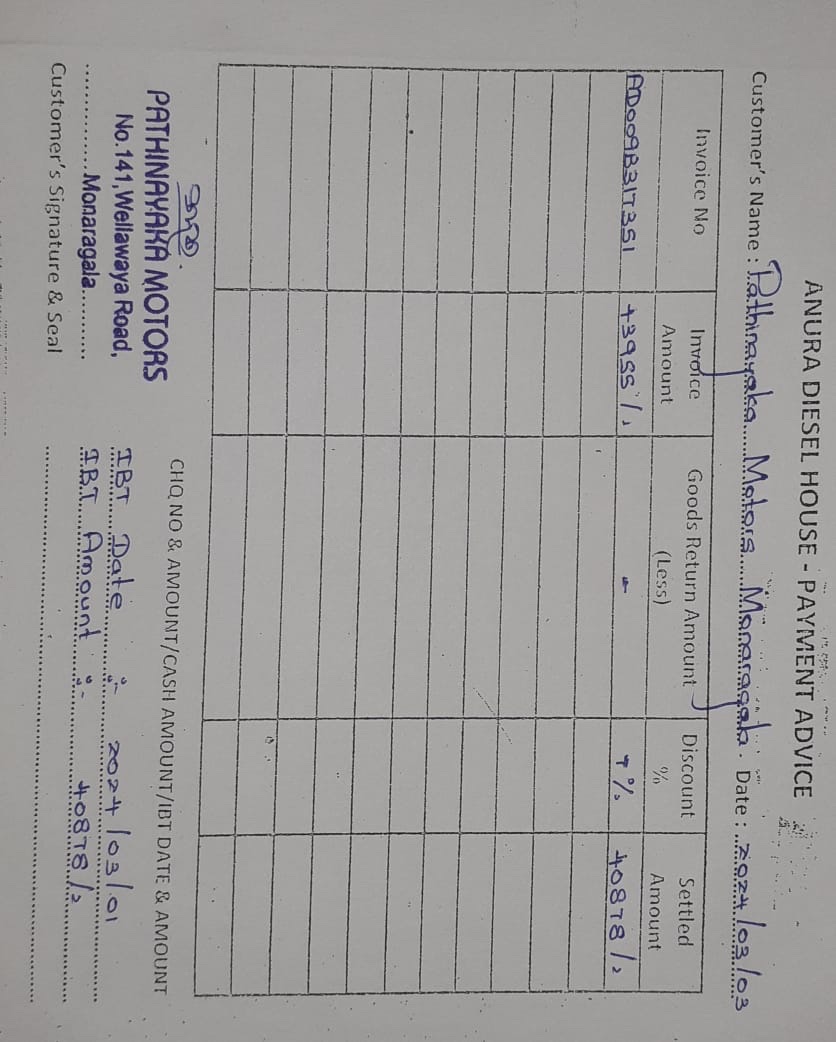 ANURA DIESEL HOUSE - PAYMENT ADVICE
Customer's Name : Pathinayaka Motors Monaragala. Date : 2024/03/03
Invoice No Invoice Amount Goods Return Amount (Less) Discount % Settled Amount
AD009B317351 43955/- - 7% 40878/-
CHQ NO & AMOUNT/CASH AMOUNT/IBT DATE & AMOUNT
IBT Date :- 2024/03/01
IBT Amount :- 40878/-
PATHINAYAKA MOTORS
No.141,Wellawaya Road,
Monaragala.
Customer's Signature & Seal